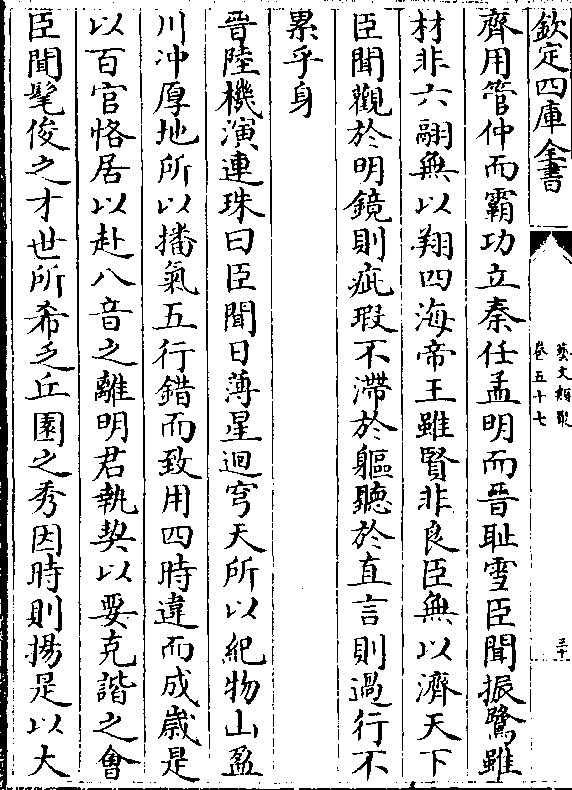 欽定四庫全書
藝文類聚
卷五十七
三十
齊用管仲而霸功立秦任孟明而晉耻雪臣聞振鷺雖
材非六翮無以翔四海帝王雖賢非良臣無以濟天下
臣聞觀於明鏡則疵瑕不滯於軀聽於直言則過行不
累乎身
晉陸機演連珠曰臣聞日薄星迴穹天所以紀物山盈
川冲厚地所以播氣五行錯而致用四時違而成歲是
以百官恪居以赴八音之離明君執契以要克諧之會
臣聞髦俊之才世所希乏丘園之秀因時則揚是以大